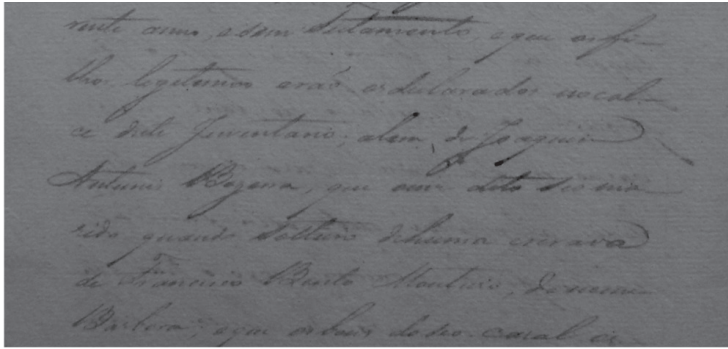 rente anno, e sem Testamento, e que os fi-
lhos legitimos erão os declarados no cal-
ce deste Inventario, alem de Joaquim
Antonio Bezerra, que
rido quando solteiro de huma escrava
de Francisco Bento Monteiro, de nome
Barbora, e que os bens do seo casal